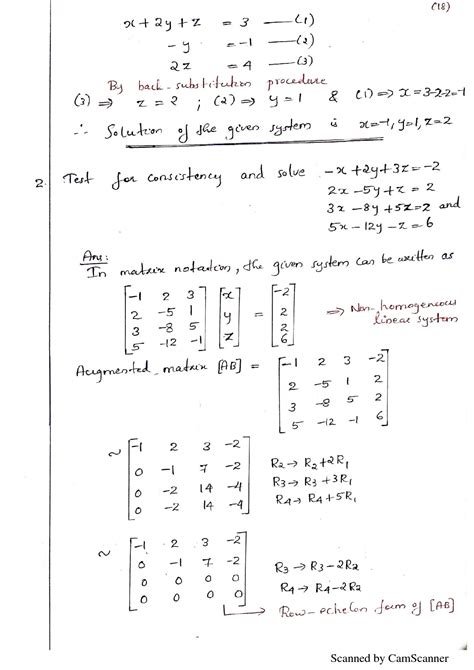 (18)
x + 2y + z = 3 —(1)
-y = -1 —(2)
2z = 4 —(3)
By back-substitution procedure
(3) ⇒ z = 2 ; (2) ⇒ y = 1 & (1) ⇒ x = 3-2-2 = -1
∴ Solution of the given system is x=-1, y=1, z=2
2. Test for consistency and solve -x+2y+3z=-2
2x-5y+z=2
3x-8y+5z=2 and
5x-12y-z=6
Ans:
In matrix notation, the given system can be written as
[-1 2 3] [x] [-2]
[2 -5 1] [y] = [2]
[3 -8 5] [z] [2]
[5 -12 -1] [6]
⇒ Non-homogeneous
linear system
Augmented matrix [AB] = [-1 2 3 -2]
[2 -5 1 2]
[3 -8 5 2]
[5 -12 -1 6]
~ [-1 2 3 -2]
[0 -1 7 -2] R2 → R2+2R1
[0 -2 14 -4] R3 → R3+3R1
[0 -2 14 -4] R4 → R4+5R1
~ [-1 2 3 -2]
[0 -1 7 -2]
[0 0 0 0] R3 → R3-2R2
[0 0 0 0] R4 → R4-2R2
→ Row-echelon form of [AB]
Scanned by CamScanner